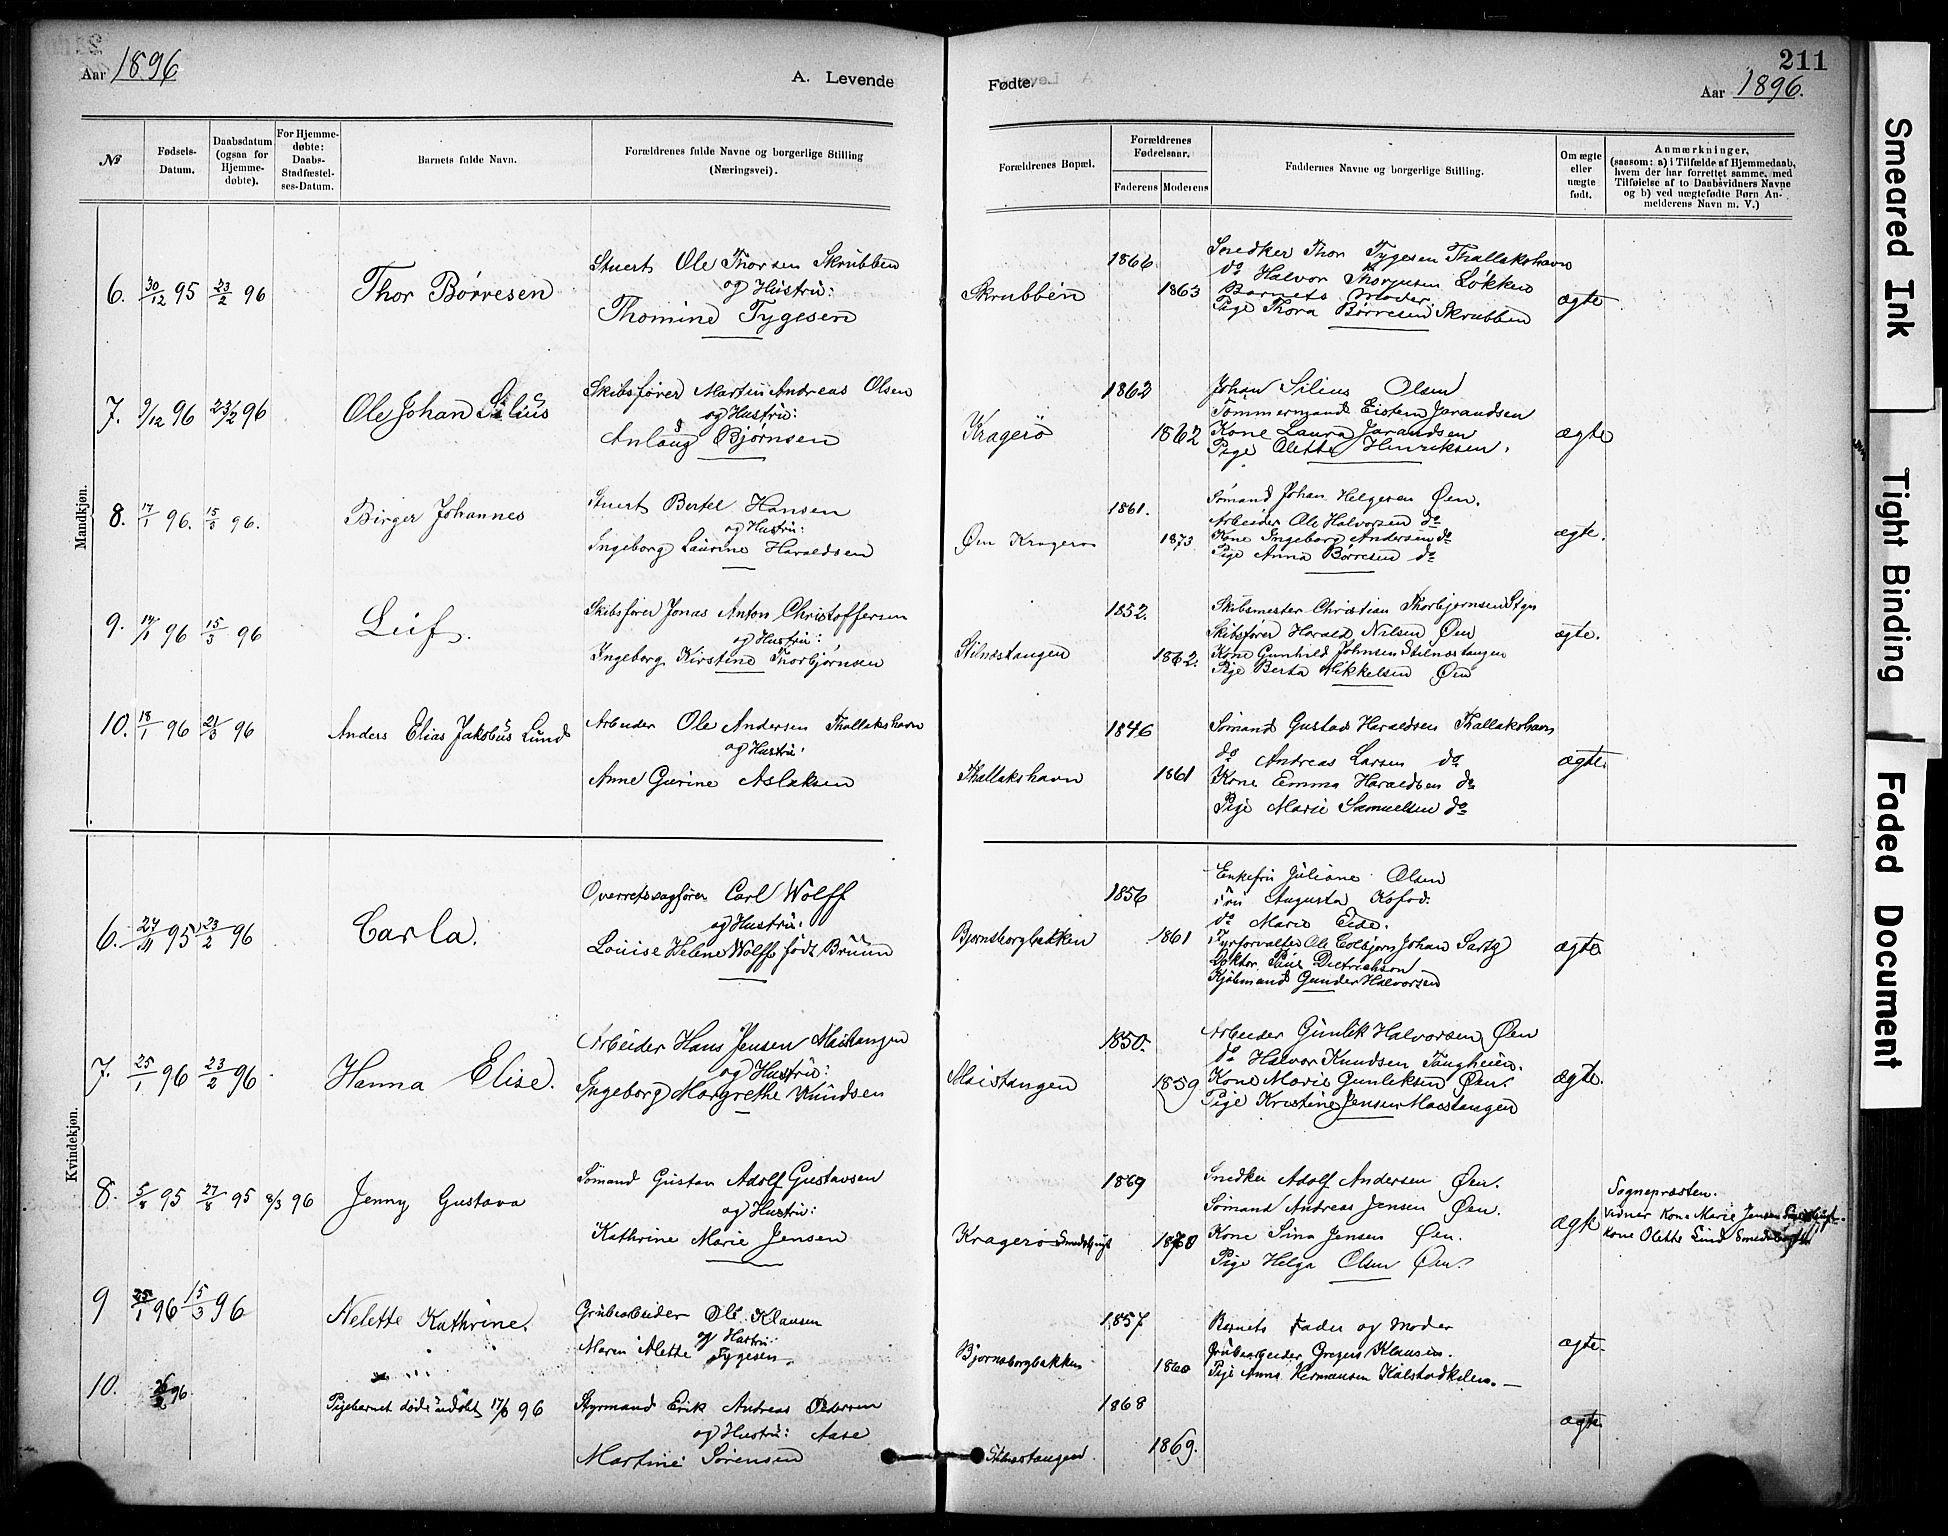 211
Aar 1896
A. Levende
Fødte.
Aar 1896.
№
Fødsels-Datum.
Daabsdatum (ogsaa for Hjemme-døbte).
For Hjemme-døbte: Daabs-Stadfæstel-ses-Datum.
Barnets fulde Navn.
Forældrenes fulde Navne og borgerlige Stilling
(Næringsvei).
Forældrenes Bopæl.
Forældrenes Fødselsaar.
Faderens
Moderens
Faddernes Navne og borgerlige Stilling.
Om ægte eller uægte født.
Anmærkninger,
(saasom: a) i Tilfælde af Hjemmedaab,
hvem der har forrettet samme, med
Tilføielse af to Daabsvidners Navne
og b) ved uægtefødte Børn An-
melderens Navn m. V.)
Mandkjøn.
6. 30/12 95 23/2 96 Thor Børresen
Stuert Ole Thorsen Skrubben
og Hustru:
Thomine Tygesen
Skrubben 1866 1863
Snedker Thor Tygesen Thallakshavn
do Halvor Thorjusen Løkken
Barnets Moder.
Pige Thora Børresen Skrubben
ægte
7. 9/12 96 23/2 96 Ole Johan Silius
Skibsfører Martin Andreas Olsen
og Hustru:
Anlaug Bjørnsen
Kragerö 1862 1862
Johan Silius Olsen
Tømmermand Eistein Jarandsen
Kone Laura Jarandsen
Pige Olette Henriksen.
ægte
8. 17/1 96. 15/3 96. Birger Johannes
Stuert Bertel Hansen
og Hustru:
Ingeborg Laurine Haraldsen
Øen Kragerø 1861. 1873
Sømand Johan Helgesen Øen.
Arbeider Ole Halvorsen do
Kone Ingeborg Andersen do
Pige Anna Børresen do
ægte.
9. 14/1 96 15/3 96 Leif.
Skibsfører Jonas Anton Christoffersen
og Hustru:
Ingeborg Kirstine Thorbjørnsen
Stilnæstangen 1852. 1862.
Skibsmester Christian Thorbjørnsen
Skibsfører Harald Nilsen Øen
Kone Gunhild Johnsen Stilnæstangen
Pige Berta Mikkelsen Øen
ægte.
10. 18/1 96 21/3 96 Anders Elias Jakobus Lund
Arbeider Ole Andersen Thallakshavn
og Hustru:
Anne Gurine Aslaksen
Thallakshavn 1846 1861
Sømand Gustav Haraldsen Thallakshavn
do Andreas Larsen do
Kone Emma Haraldsen do
Pige Marie Samuelsen do
ægte.
Kvindekjøn.
6. 24/11 95 23/2 96 Carla.
Overretssagfører Carl Wolff
og Hustru:
Louise Helene Wolff født Bruun
Bjørnsborgbakken 1856 1861
Enkefru Juliane Olsen
Fru Augusta Kofod.
do Marie Eide.
Fyrforvalter Ole Colbjørn Johan Sartz
Doktor Paul Dietrichson
Kjøbmand Gunder Halvorsen
ægte
7. 25/1 96 23/2 96 Hanna Elise.
Arbeider Hans Jensen Maistangen
og Hustru:
Ingeborg Margrethe Knudsen
Maistangen 1850. 1859
Arbeider Gunlek Halvorsen Øen
do Halvor Knudsen Tangheien.
Kone Marie Gunleksen Øen.
Pige Kristine Jensen Maistangen
ægte.
8. 5/8 95 27/8 95 8/3 96 Jenny Gustava
Sømand Gustav Adolf Gustavsen
og Hustru:
Kathrine Marie Jensen
Kragerø Smedsbugt 1869 1870
Snedker Adolf Andersen Øen.
Sømand Andreas Jensen Øen.
Kone Sina Jensen Øen.
Pige Helga Olsen Øen.
ægte
Sognepræsten.
Vidner Kone Marie Jensen
Kone Olette Lund
9 25/1 96 15/3 96 Nelette Kathrine.
Grubearbeider Ole Klausen
og Hustru
Maren Alette Tygesen.
Bjørnsborgbakken 1857 1860
Barnets Fader og Moder
Grubearbeider Gregers Klausen.
Pige Anna Hermansen Kalstadkilen.
ægte.
10. 26/2 96. Pigebarnet døde udøbt 96
Styrmand Erik Andreas Pedersen
og Hustru: Aase
Martine Sørensen
Stilnæstangen 1868 1869.
ægte
Smeared Ink
Tight Binding
Faded Document